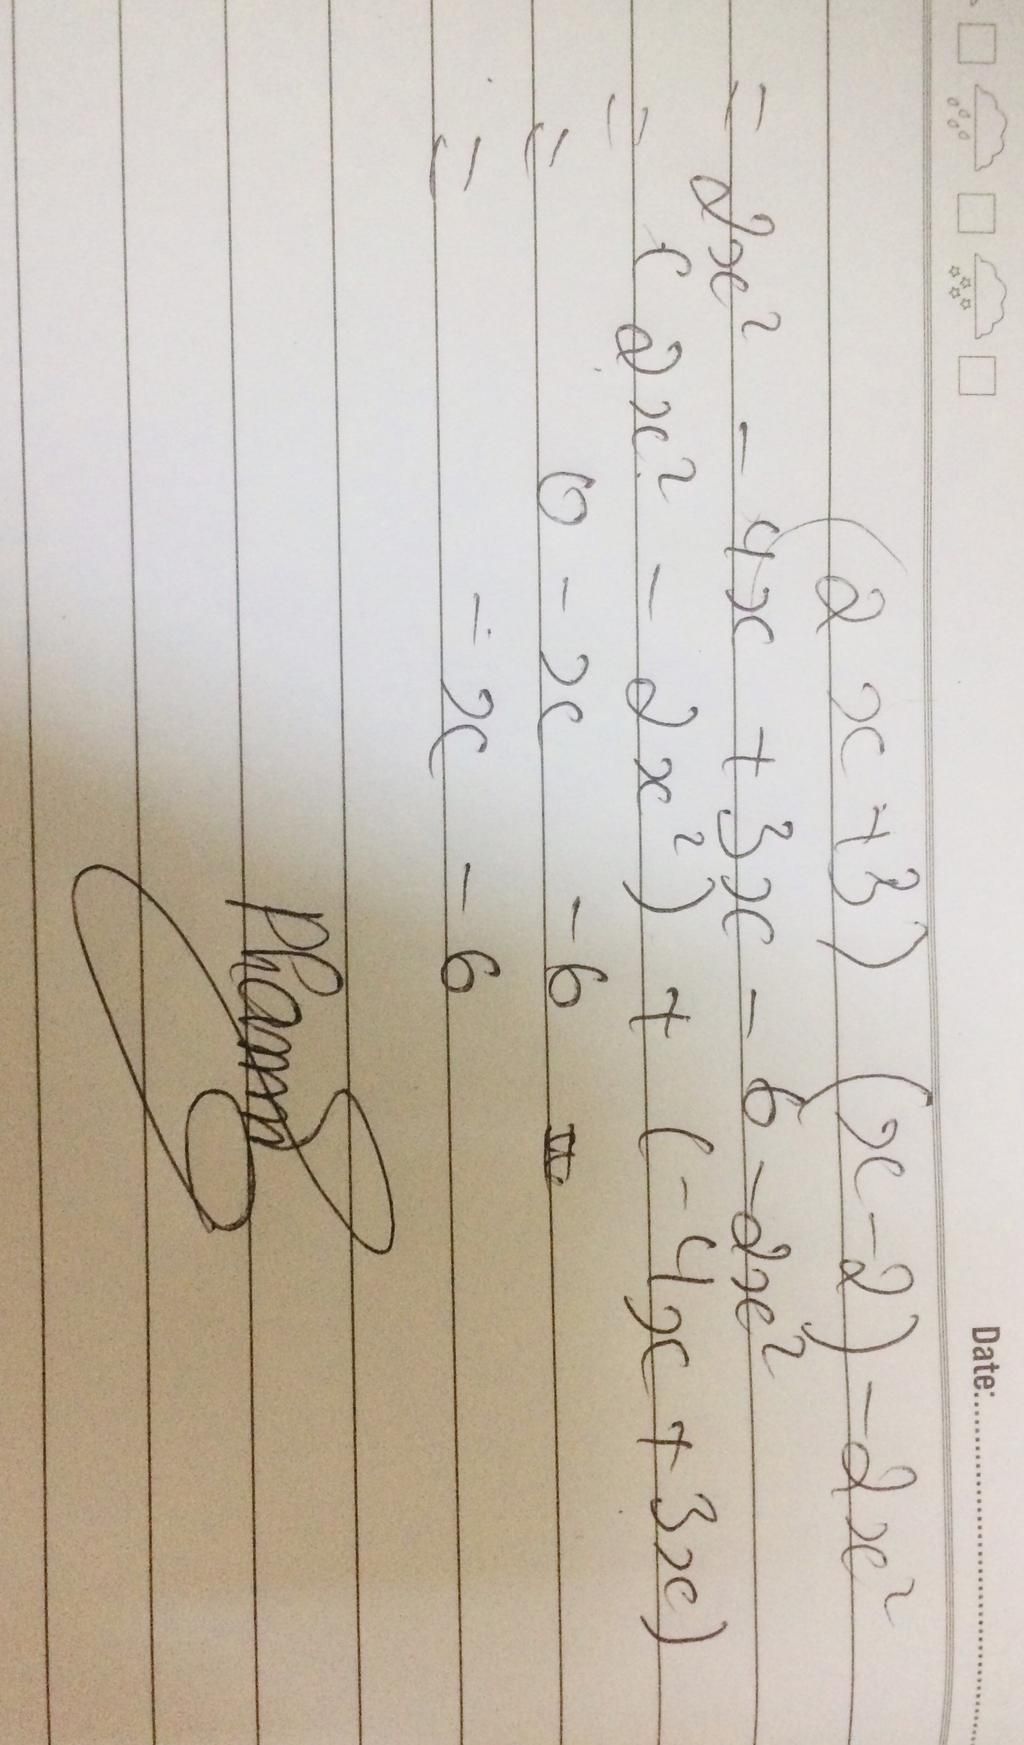 Date:
(2x+3) (x-2) - 2x²
= 2x² - 4x + 3x - 6 - 2x²
= (2x² - 2x²) + (-4x + 3x)
= 0 - x - 6
= - x - 6